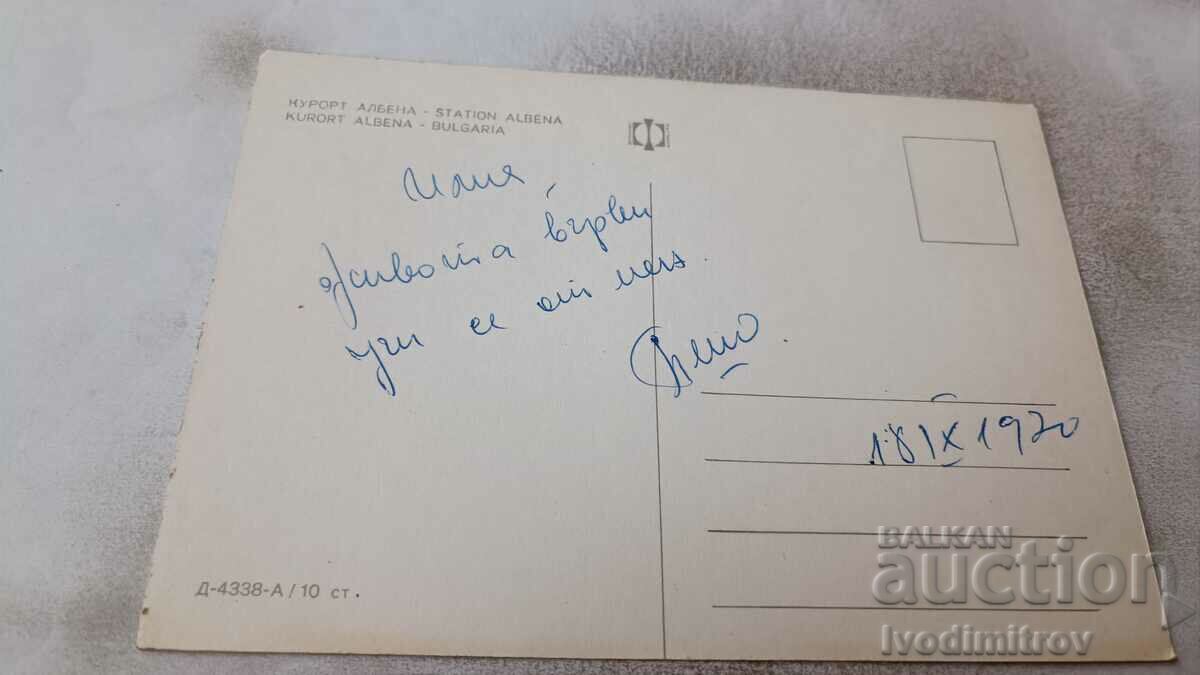 КУРОРТ АЛБЕНА - STATION ALBENA
KURORT ALBENA - BULGARIA
Илия,
живота върви
учи се от нея.
18 IX 1970
Д-4338-А / 10 ст.
BALKAN
auction
Ivodimitrov